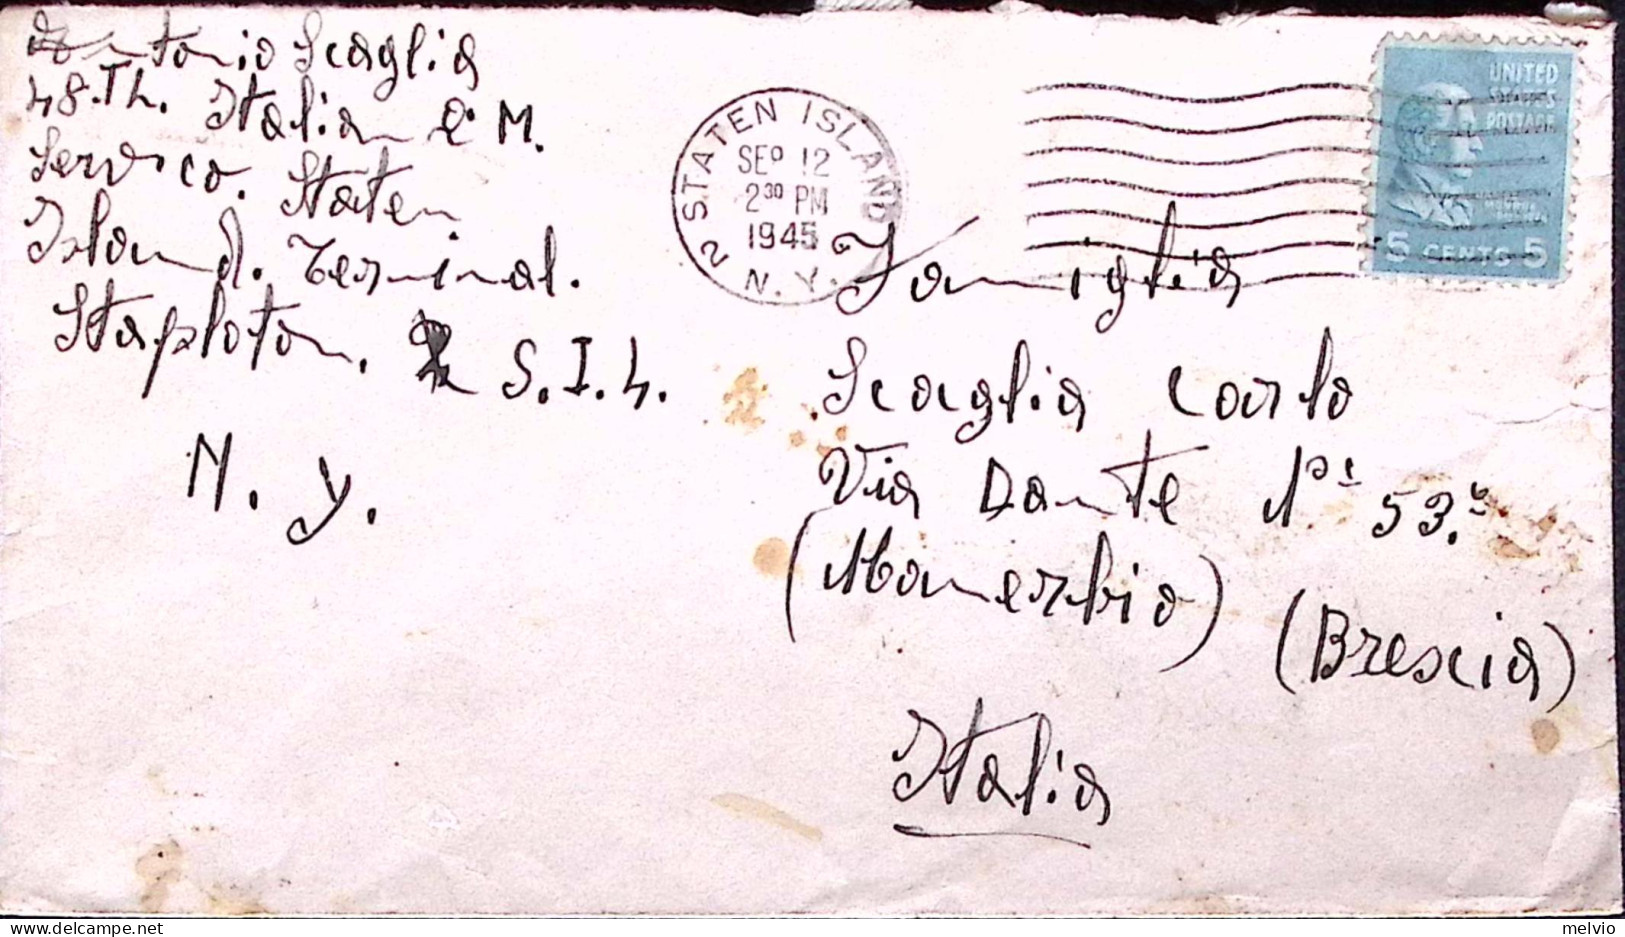 Antonio Scaglia
48.Th. Italian Q M.
Servico. Staten
Island. Terminal.
Staploton. S.I.4.
N. Y.
2 STATEN ISLAND
SEP 12
2 30 PM
1945
N. Y.
UNITED
STATES
POSTAGE
5 CENTS 5
Famiglia
Scaglia Carlo
Via Dante 53.
(Manerbio) (Brescia)
Italia
melvio